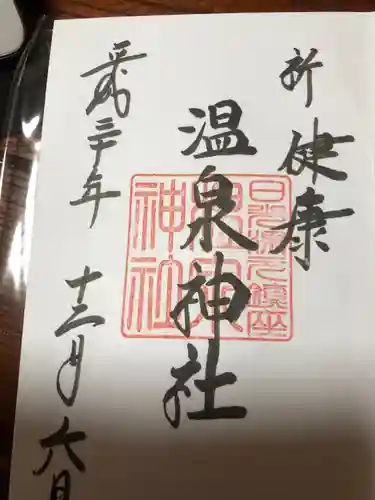 祈 健康
日光湯元鎮座
温泉神社
温泉
神社
平成三十年 十二月 六日